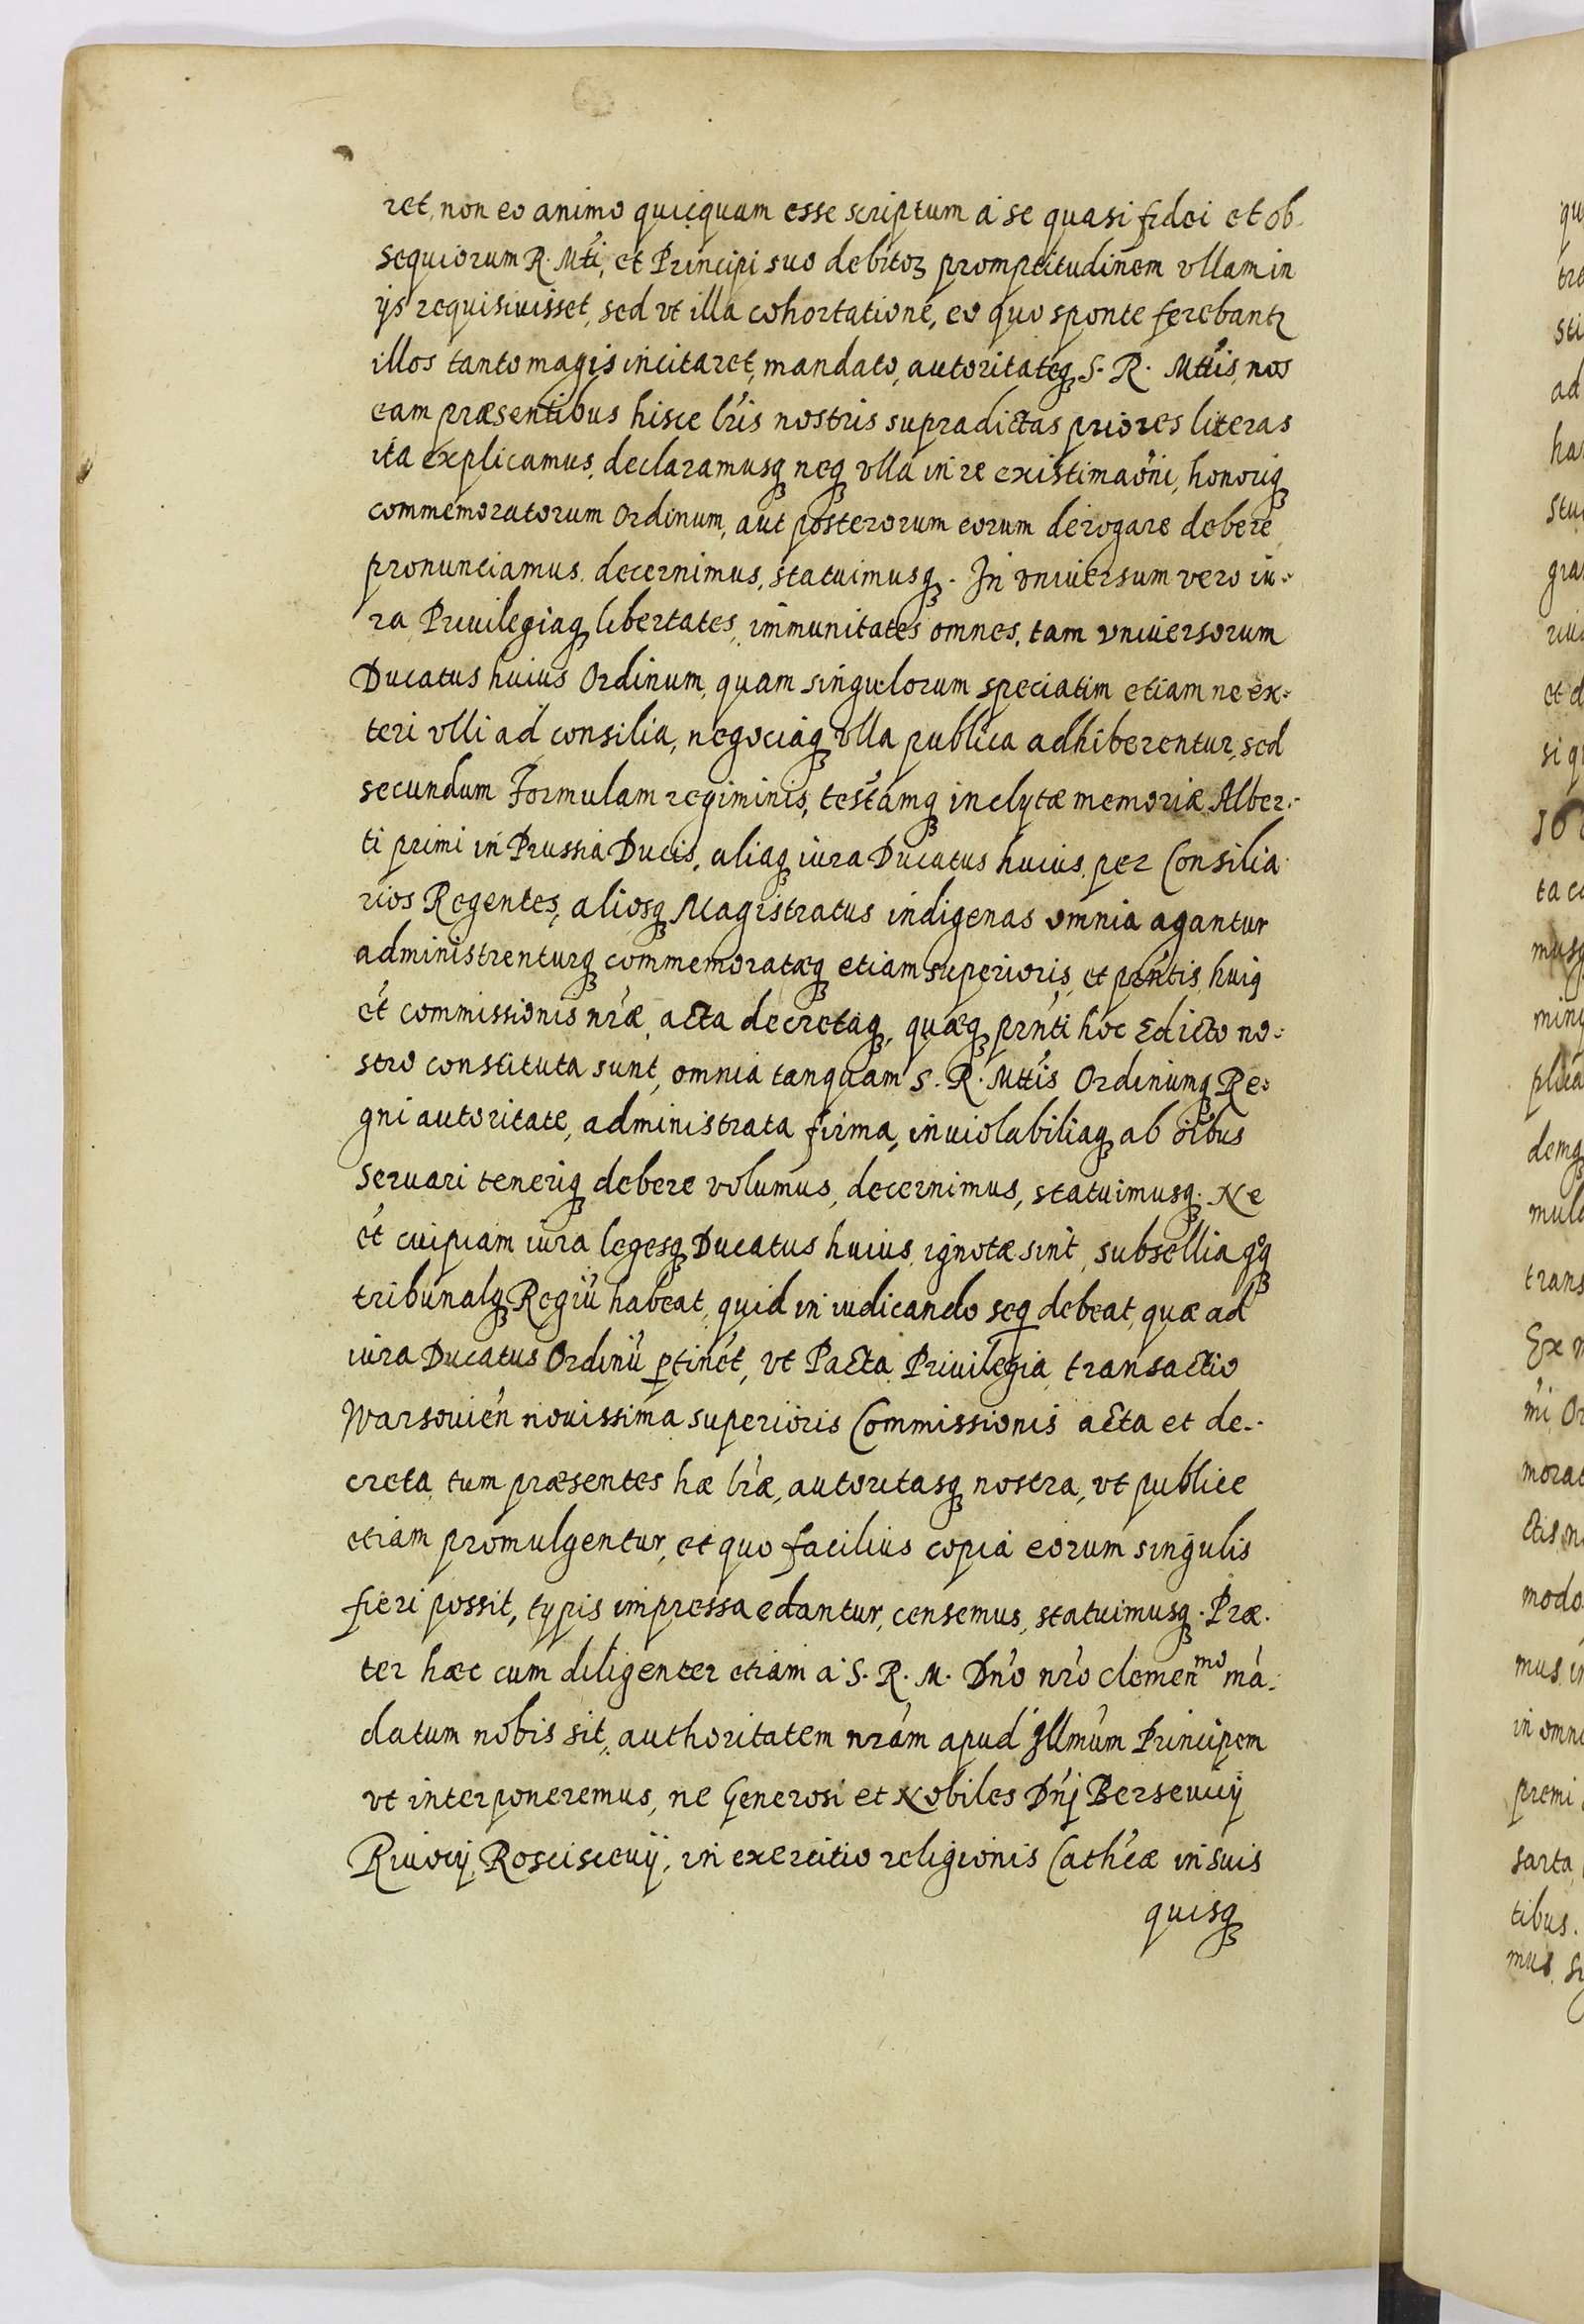 ret, non eo animo quicquam esse scriptum à se quasi fidei et ob-
sequiorum R. Mti, et Principi suo debitoꝝ promptitudinem vllam in
ijs requisiuisset, sed vt illa cohortatione, eo quo sponte ferebantr
illos tanto magis incitaret, mandato, autoritateqꝫ S. R. Mttis, nos
eam præsentibus hisce lris nostris supradictas priores literas
ita explicamus, declaramusqꝫ neqꝫ vlla in re existimaoni, honoriqꝫ
commemoratorum Ordinum, aut posterorum eorum derogare debere
pronunciamus, decernimus, statuimusqꝫ. In vniuersum vero iu-
ra Priuilegiaqꝫ libertates, immunitates omnes, tam vniuersorum
Ducatus huius Ordinum, quam singulorum speciatim etiam ne ex-
teri vlli ad consilia, negociaqꝫ vlla publica adhiberentur, sed
secundum Formulam regiminis, testamqꝫ inclytæ memoriæ Alber-
ti primi in Prussia Ducis, aliaqꝫ iura Ducatus huius per Consilia
rios Regentes, aliosqꝫ Magistratus indigenas omnia agantur
administrenturqꝫ commemoratæqꝫ etiam superioris, et pentis, huiq
et commissionis nræ, acta decretaqꝫ, quæqꝫ prnti hoc Edicto no-
stro constituta sunt, omnia tanquam S. R. Mttis Ordinumqꝫ Re-
gni autoritate, administrata firma, inuiolabiliaqꝫ ab oibus
seruari teneriqꝫ debere volumus, decernimus, statuimusqꝫ. Ne
et cuipiam iura legesqꝫ Ducatus huius ignotæ sint, subsellia qoqꝫ
tribunalqꝫ Regiu habeat, quid in iudicando seq debeat, quæ ad
iura Ducatus Ordinu ꝑtinet, vt Pacta Priuilegia, transactio
Warsouien nouissima superioris Commissionis acta et de-
creta, tum præsentes hæ lræ, autoritasqꝫ nostra, vt publice
etiam promulgentur, et quo facilius copia eorum singulis
fieri possit, typis impressa edantur, censemus, statuimusqꝫ. Præ-
ter hæc cum diligenter etiam a S. R. M. Dno nro clemenmo mā-
datum nobis sit, authoritatem nram apud Illmum Principem
vt interponeremus, ne Generosi et Nobiles Dnj Berseuicij
Riuocij, Roscisceuij, in exercitio religionis Cathcæ in suis
quisqꝫ